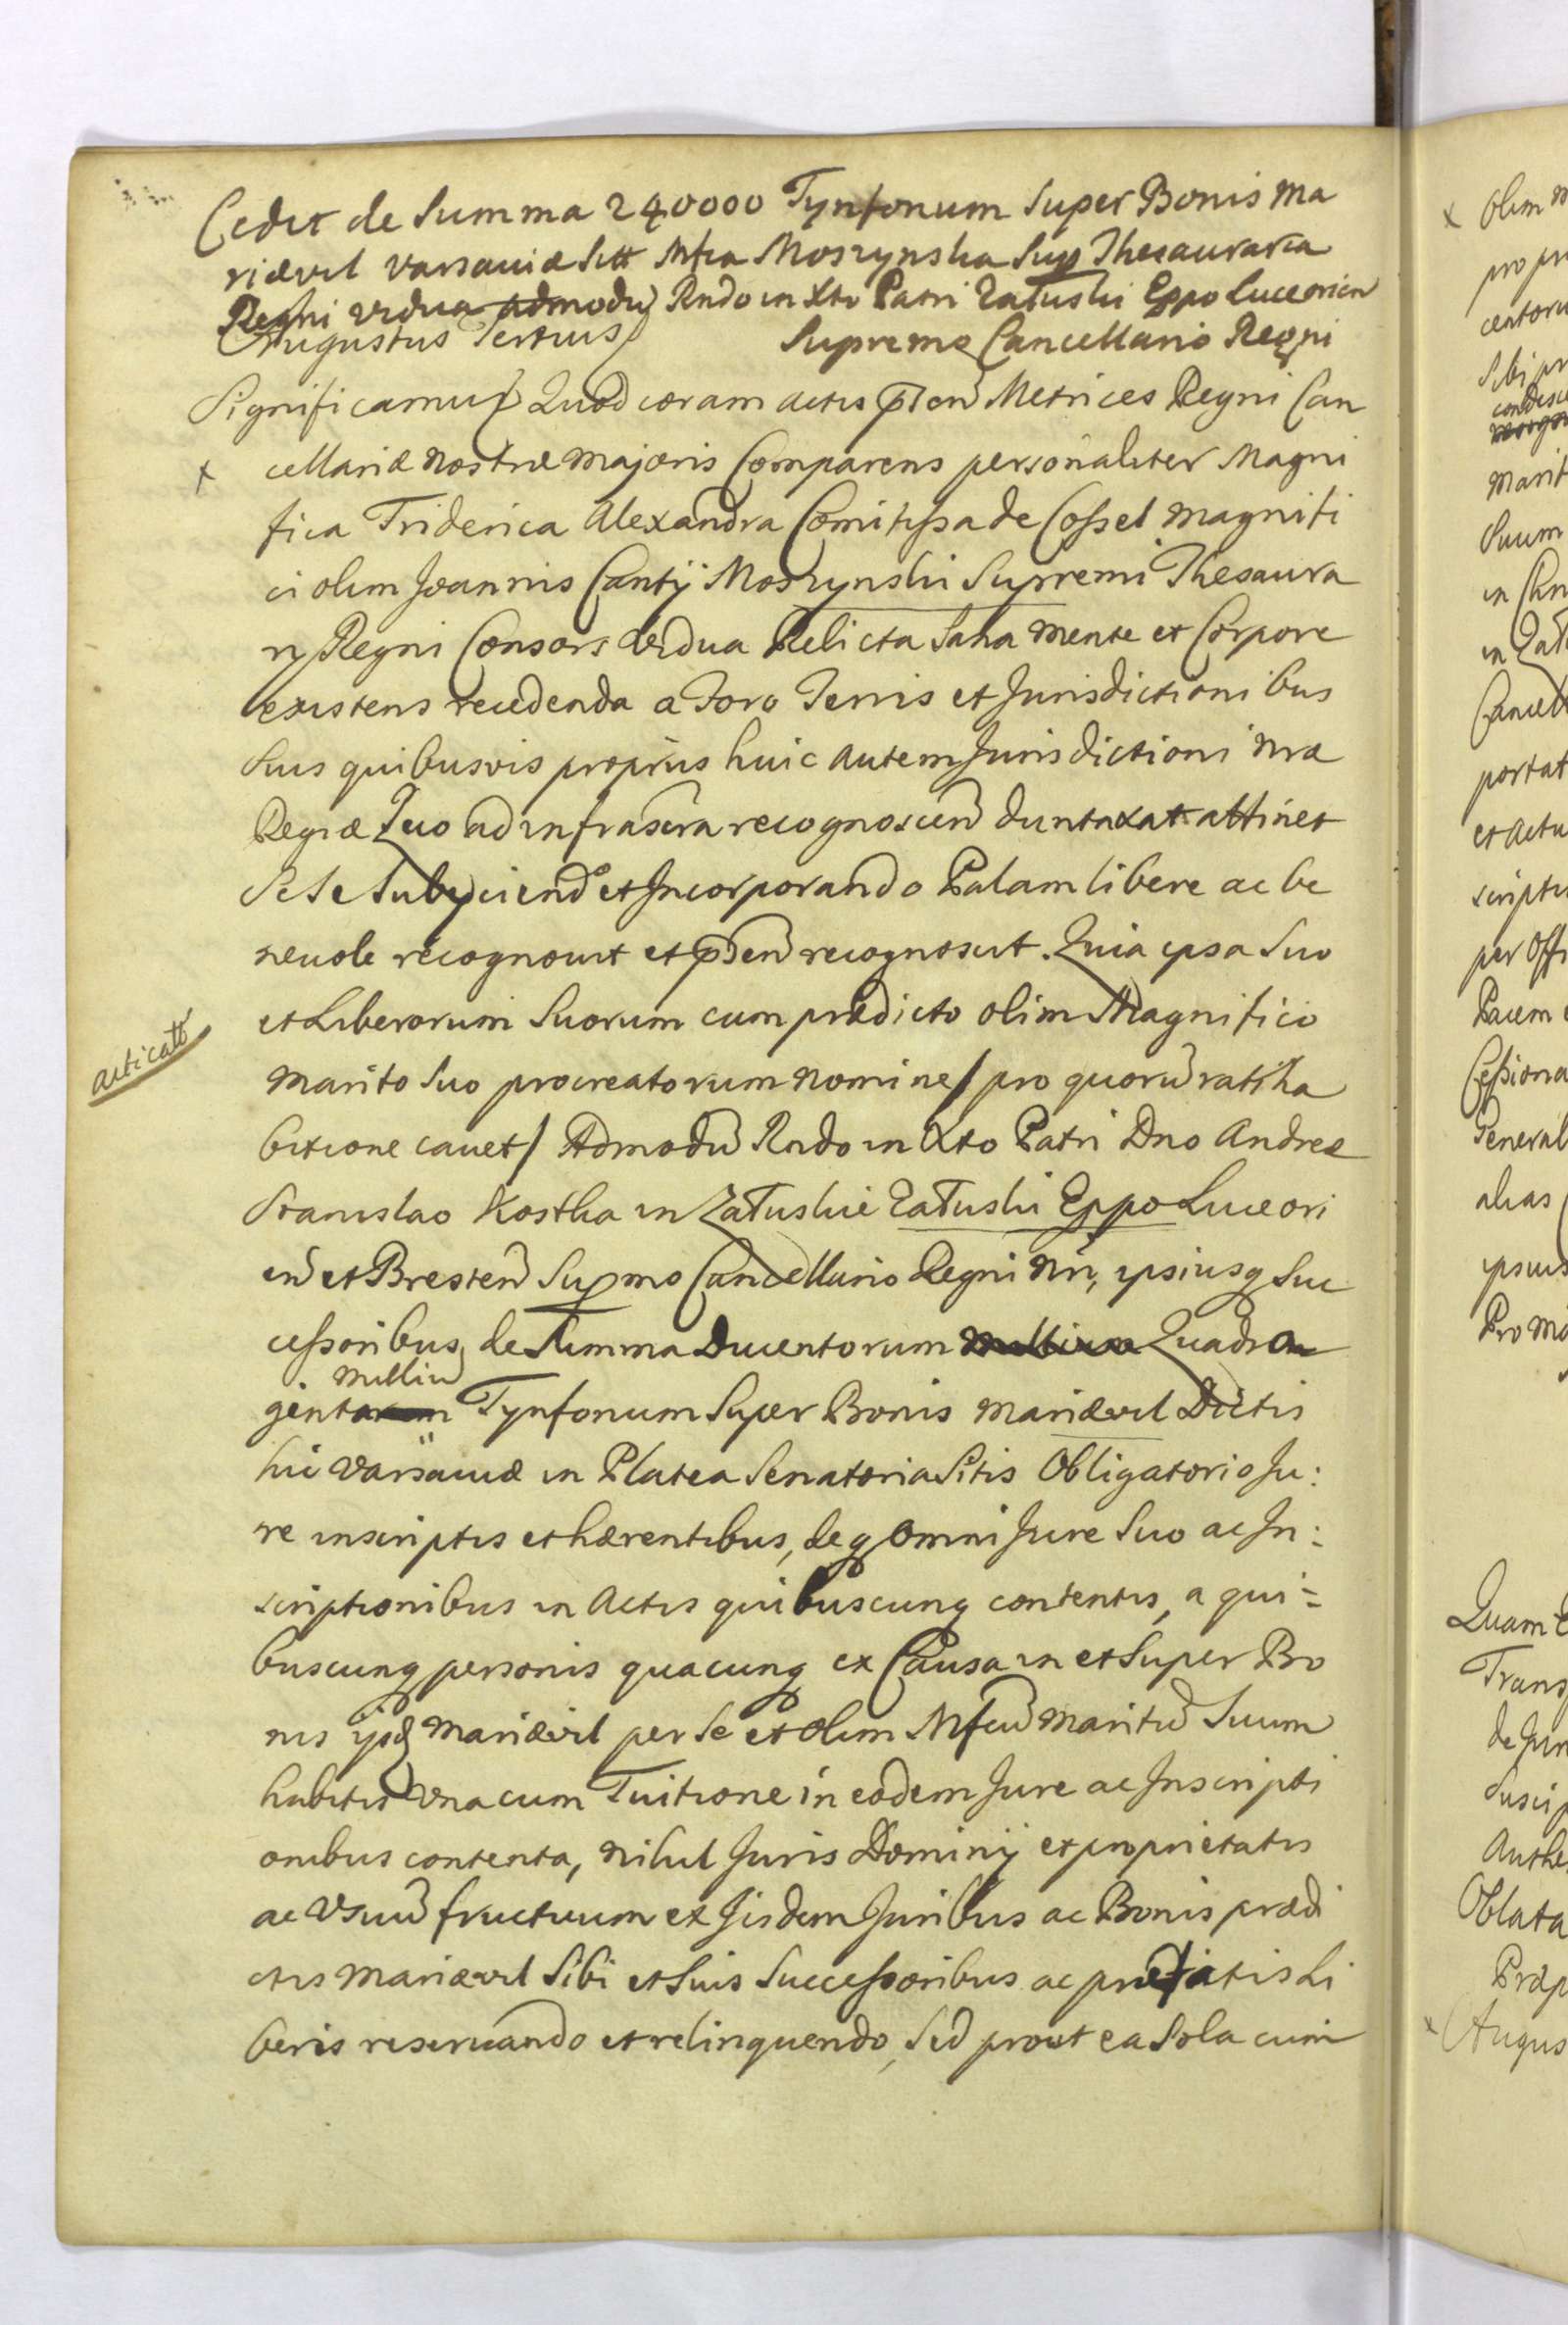 Cedit de Summa 240000 Tynfonum Super Bonis Ma
riævil Varsaviæ Sitt Mfca Moszynska Sup Thesauraria
Regni Vidua admodũ Rndo in Xto Patri Załuski Eppo Luceorien
Augustus Tertius Supremo Cancellario Regni
Significamus Quod coram actis pñten Metrices Regni Can
x cellariæ nostræ majoris Comparens personaliter Magni
fica Friderica Alexandra Comitissa de Cossel Magnifi
ci olim Joannis Cantij Moszynski Supremi Thesaura
rij Regni Consors Vidua Relicta Sana mente et Corpore
existens recedendo a Foro Terris et Jurisdictionibus
Suis quibusvis proprijs huic autem Jurisdictioni nræ
Regiæ Quo ad infrascra recognoscen duntaxat attinet
Se Se Subijciend et Incorporando Palam libere ac be
nevole recognovit et pñten recognoscit. Quia ipsa Suo
et Liberorum Suorum cum prædicto olim Magnifico
articatt
Marito Suo procreatorum nomine / pro quorũ ratiha
bitione cavet / Admodũ Rndo in Xto Patri Dno Andreæ
Stanislao Kostka in Załuskie Załuski Eppo Luceori
en et Bresten Supmo Cancellario Regni Nri, ipsiusq Suc
cessoribus, de Summa Ducentorum millium Quadra
milliũ
gentarum Tynfonum Super Bonis Mariævil Dictis
hic Varsaviæ in Platea Senatoria Sitis Obligatorio Ju:
re inscriptis et hærentibus, deq omni Jure Suo ac In:
scriptionibus in Actis quibuscunq contentis, a qui=
buscunq personis quacunq ex Causa in et Super Bo
nis ijsd Mariævil per Se et olim Mfcũ Maritũ Suum
habitis una cum Tuitione in eodem Jure ac Inscripti
onibus contenta, nihil Juris Dominij et proprietatis
ac Usuũ fructuum ex Iisdem Juribus ac Bonis prædi
ctis Mariævil Sibi et Suis Successoribus ac præfatis Li
beris reservando et relinquendo, Sed prout ea Sola cum